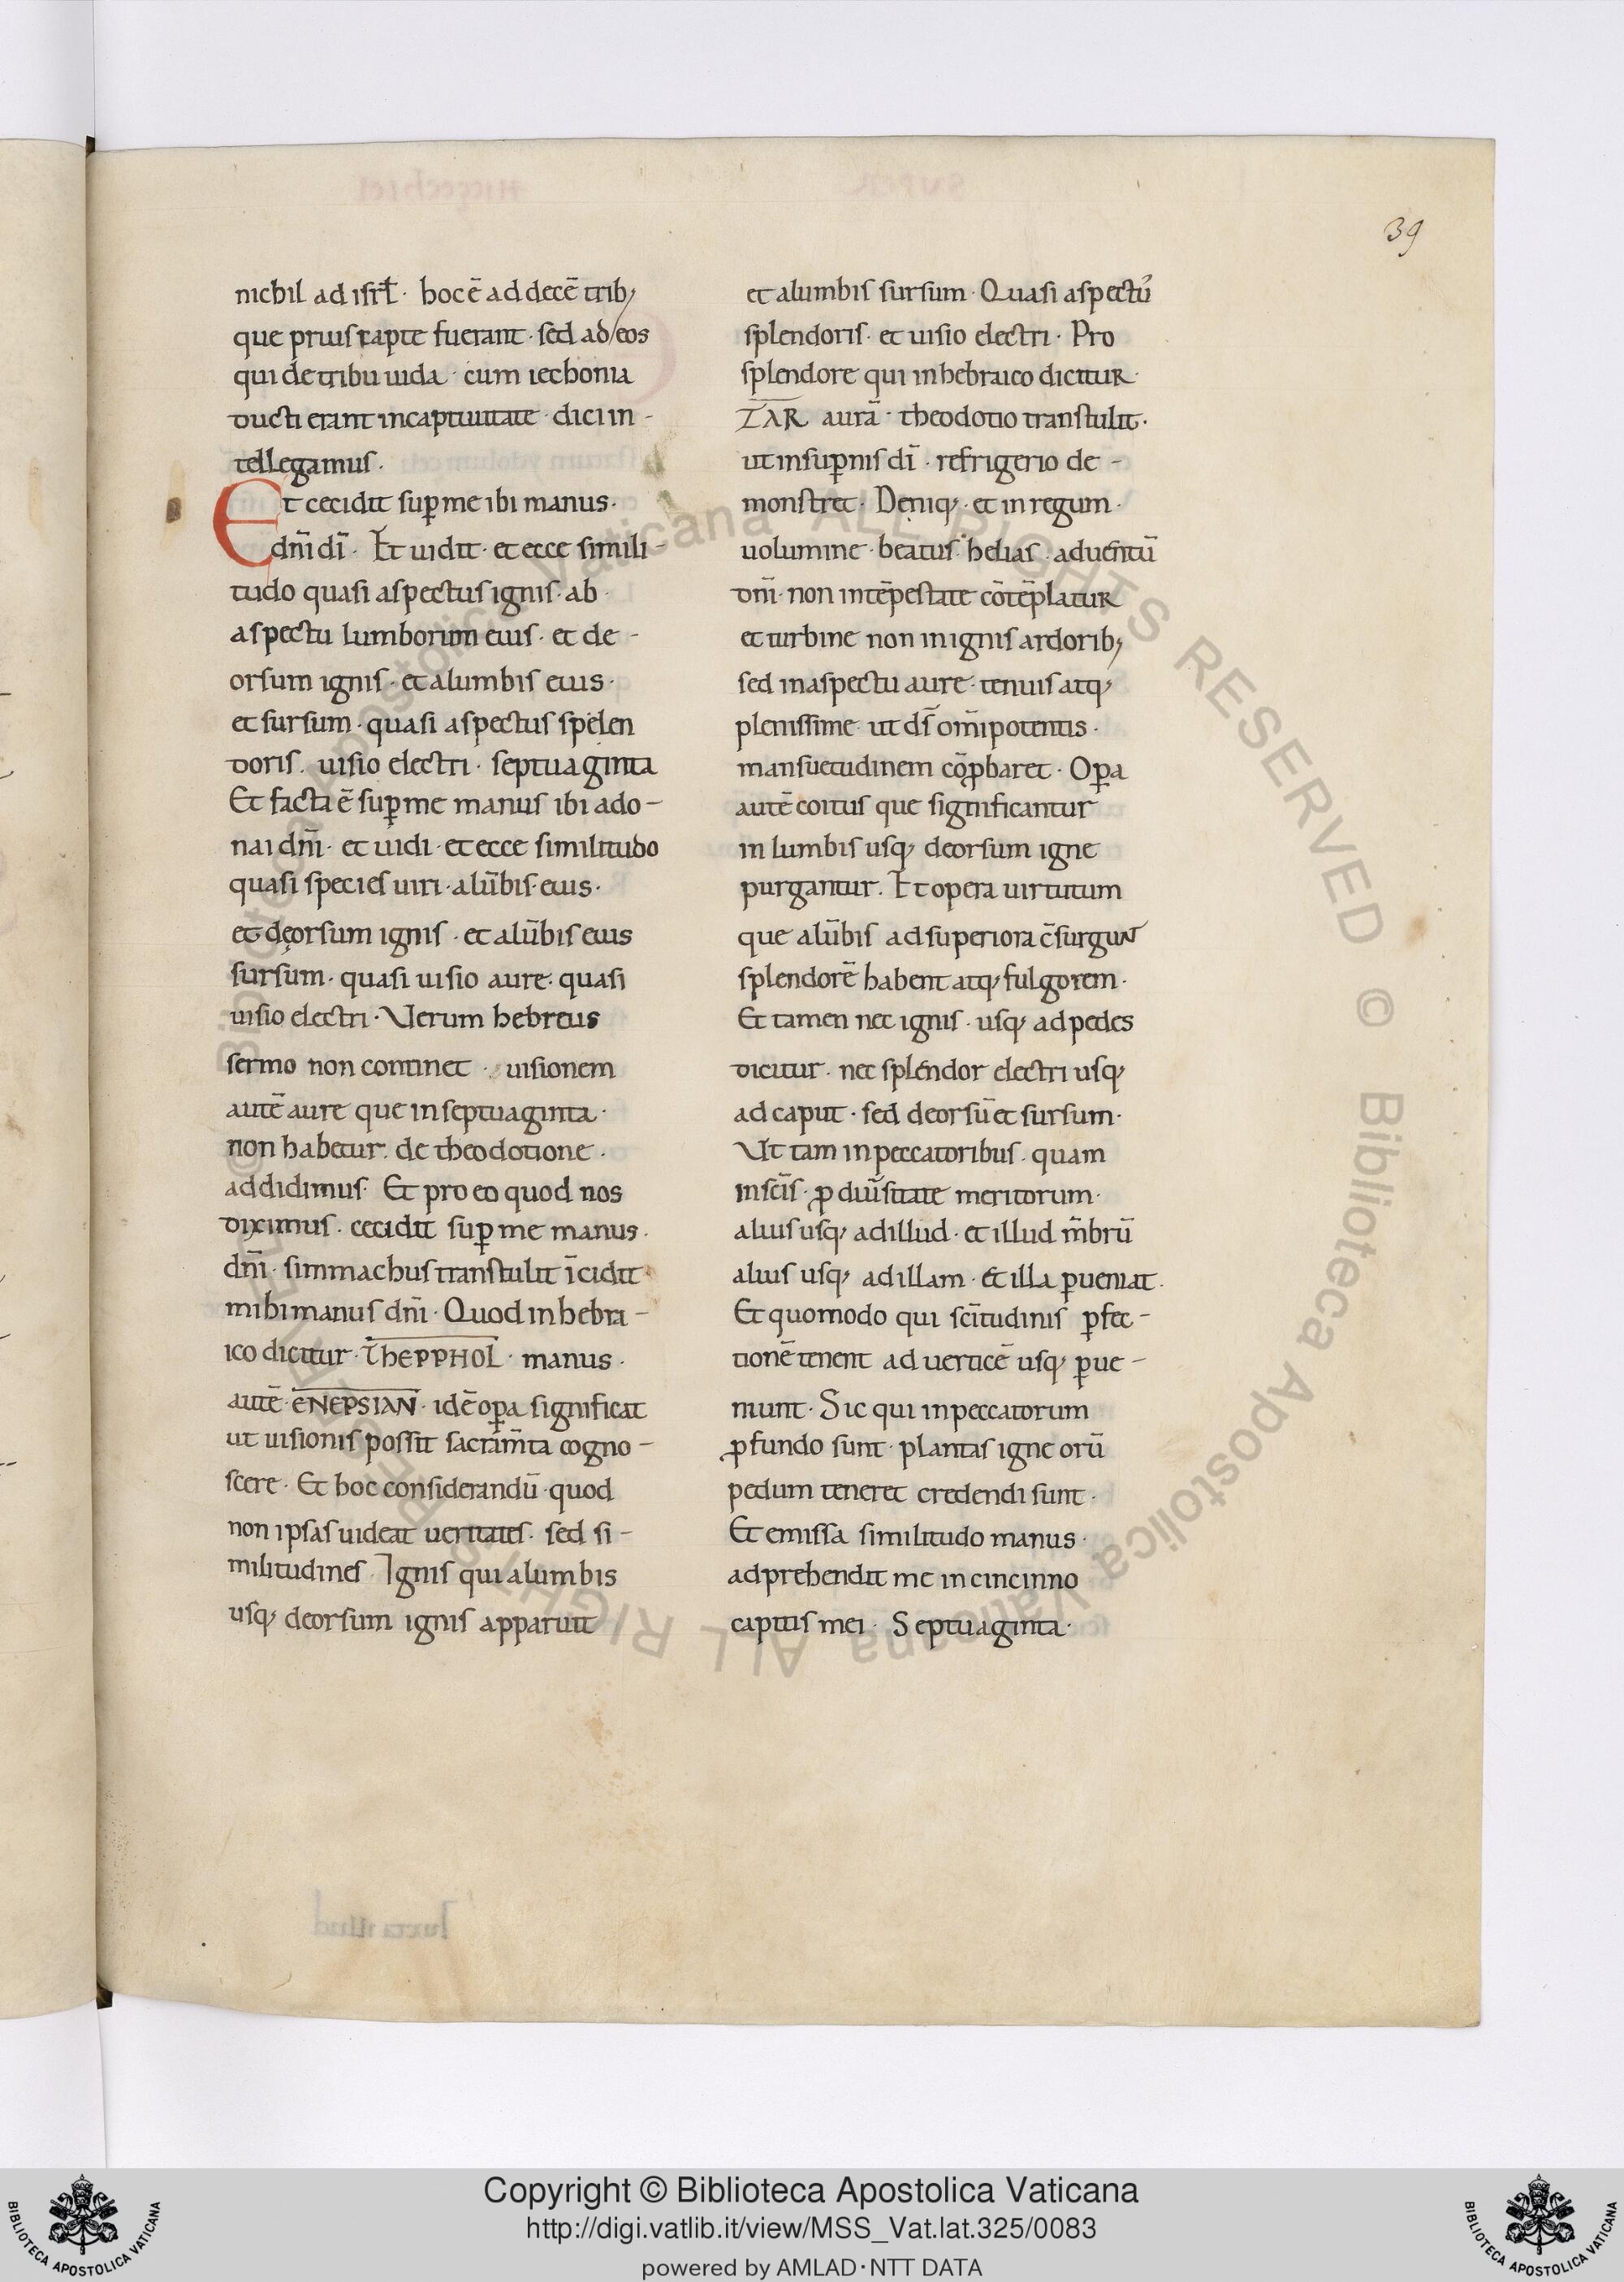 39
nichil ad isrl̄· hoc ē ad decē trib;
que prius rapte fuerant· sed ad eos
qui de tribu iuda· cum iechonia
ducti erant in captiuitate· dici in-
tellegamus.
Et cecidit sup̱ me ibi manus·
dn̄i dī· Et uidit· et ecce simili-
tudo quasi aspectus ignis· ab·
aspectu lumborum eius· et de-
orsum ignis· et a lumbis eius·
et sursum· quasi aspectus spelen
doris. uisio electri· septuaginta
Et facta ē sup̱ me manus ibi ado-
nai dn̄i· et uidi· et ecce similitudo
quasi species uiri· a lūbis eius·
et deorsum ignis· et a lūbis eius
sursum· quasi uisio aure· quasi
uisio electri· Verum hebreus
sermo non continet· uisionem
autē aure que in septuaginta·
non habetur. de theodotione·
addidimus· Et pro eo quod nos
diximus· cecidit sup̱ me manus·
dn̄i· simmachus transtulit īcidit
mihi manus dn̄i· Quod in hebra-
ico dicitur· ThEPPHOL· manus·
autē· ENEPSIAN· idē op̱a significat
ut uisionis possit sacram̄ta cogno-
scere· Et hoc considerandū· quod
non ipsas uideat ueritates· sed si-
militudines· Ignis qui a lumbis
usq; deorsum ignis apparuit
et a lumbis sursum· Quasi aspectū
splendoris· et uisio electri· Pro
splendore qui in hebraico dicitur·
ZAR aurā· theodotio transtulit·
ut in sup̱nis dī· refrigerio de-
monstret· Deniq;· et in regum·
uolumine· beatus helias· aduentū
dn̄i· non in tēpestate cōtēplatur
et turbine non in ignis ardorib;
sed in aspectu aure· tenuis atq;
plenissime· ut ds̄ om̄ipotentis·
mansuetudinem cōp̱baret· Op̱a
autē coitus que significantur
in lumbis usq; deorsum igne
purgantur. Et opera uirtutum
que a lūbis ad superiora c̄surgunt
splendorē habent atq; fulgorem·
Et tamen nec ignis· usq; ad pedes
dicitur· nec splendor electri usq;
ad caput· sed deorsū et sursum·
Vt tam in peccatoribus· quam
in scīs· p̱ diūsitate meritorum·
alius usq; ad illud· et illud m̄brū
alius usq; ad illam· et illa p̱ueniat·
Et quomodo qui scītudinis p̱fec-
tionē tenent ad uerticē usq; p̱ue-
niunt· Sic qui in peccatorum
p̱fundo sunt· plantas igne orū
pedum teneret credendi sunt·
Et emissa similitudo manus·
adprehendit me in cincinno
capitis mei· Septuaginta·
© Biblioteca Apostolica Vaticana ALL RIGHTS RESERVED © Biblioteca Apostolica Vaticana ALL RIGHTS RESERVED
Copyright © Biblioteca Apostolica Vaticana
http://digi.vatlib.it/view/MSS_Vat.lat.325/0083
powered by AMLAD·NTT DATA
BIBLIOTECA APOSTOLICA VATICANA
BIBLIOTECA APOSTOLICA VATICANA